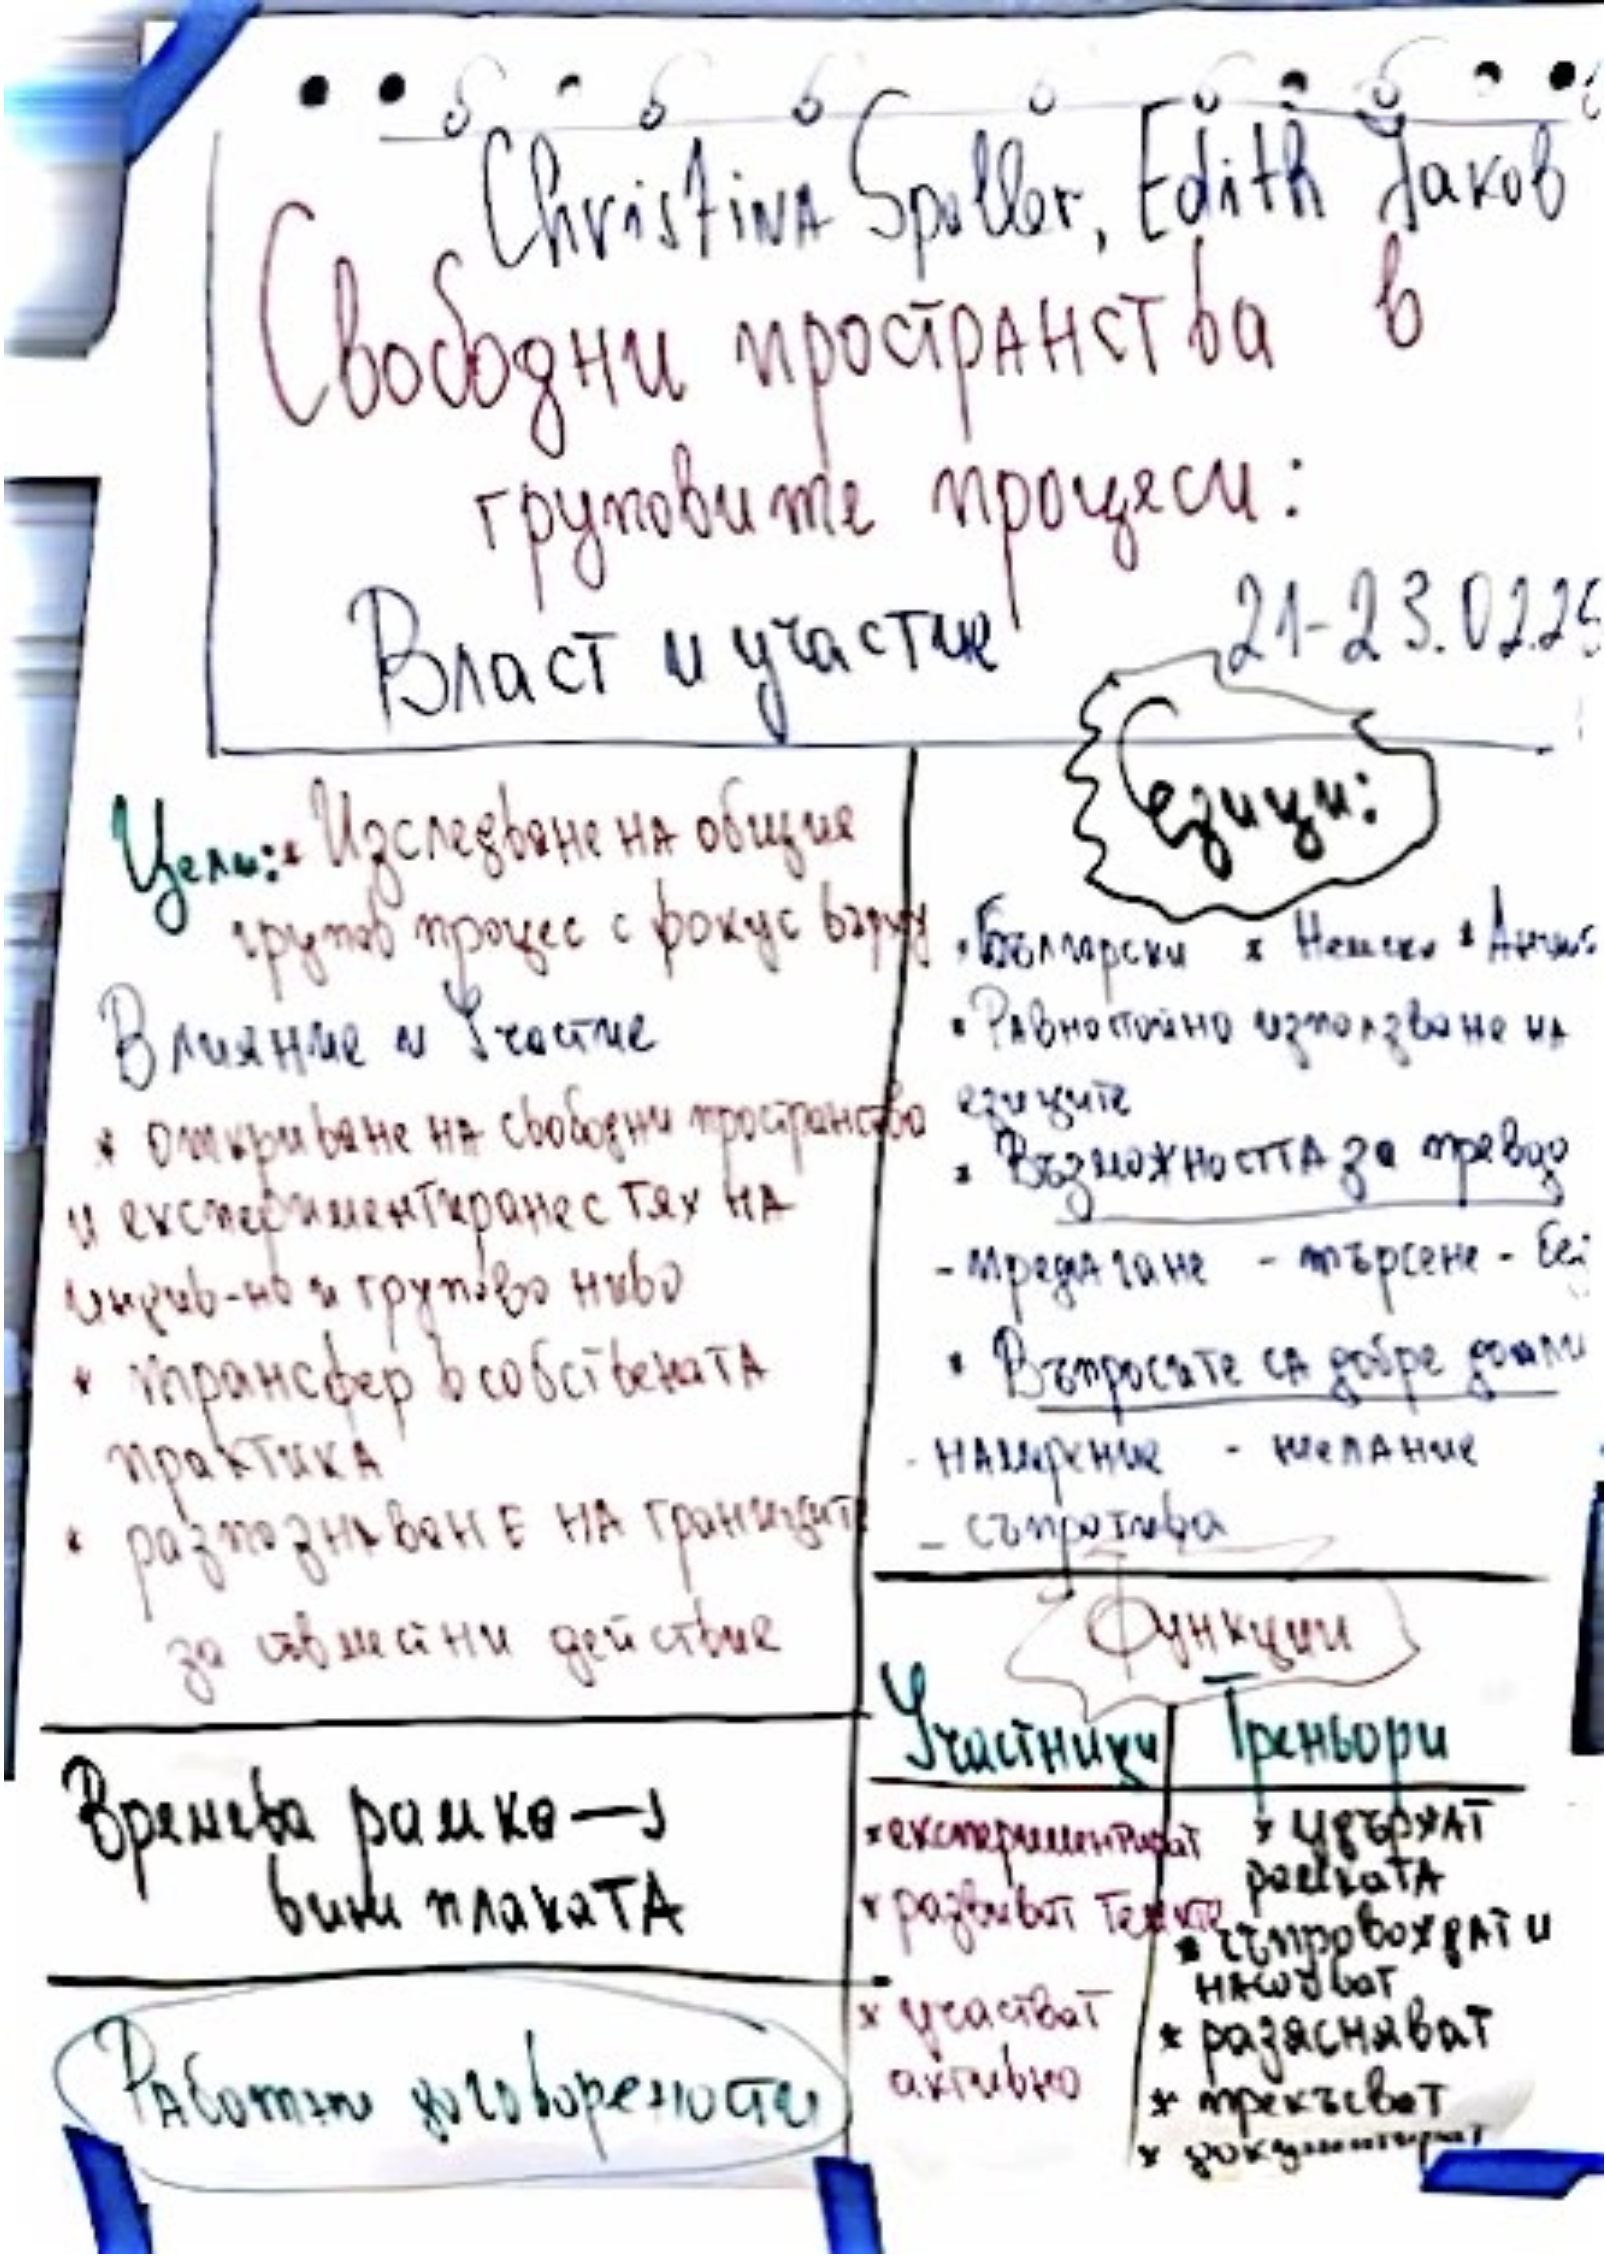 Christina Spaller, Edith Jakob
Свободни пространства в
груповите процеси:
Власт и участие
21-23.02.25
Цели: * Изследване на общия
групов процес с фокус върху
Влияние и Участие
* откриване на свободни пространства
и експериментиране с тях на
индив-но и групово ниво
* трансфер в собствената
практика
* разпознаване на границите
за съвместни действия
Времева рамка →
виж плаката
Работни договорености
Езици:
* Български * Немски
* Равностойно използване на
езиците
* Възможността за превод
- предлагане - търсене -
* Въпросите са добре дошли
- намерение - желание
- съпротива
Функции
Участници
* експериментират
* развиват темите
* участват
активно
Треньори
* удържат
рамката
* съпровождат и
насочват
* разясняват
* прекъсват
* документират